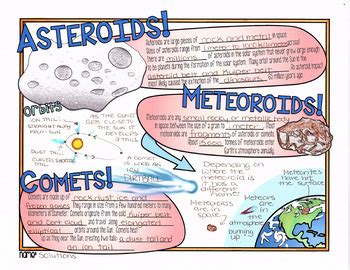 ASTEROIDS!
Asteroids are large pieces of rock and metal in space.
Sizes of asteroids range from 1 meter to 1000 kilometers
There are millions of asteroids in the solar system that never grew large enough
to be planets during the formation of the solar system. Many orbit around the Sun in the
asteroid belt and Kuiper belt. An asteroid impact
most likely caused the extinction of the dinosaurs 65 million years ago.
orbits
ION TAIL:
STRAIGHT AWAY
FROM SUN
AS THE COMET
GETS CLOSE TO
THE SUN IT
DEVELOPS
2 TAILS
DUST TAIL:
CURVED
METEOROIDS!
Meteoroids are any small rocky or metallic body
in space between the size of a grain to 1 meter. Most
meteoroids are fragments of comets or asteroids.
About 15,000 tonnes of meteoroids enter
Earth's atmosphere annually.
A COMET
LOOKS LIKE
AN
COMETS!
Comets are made up of rock, dust, ice and
frozen gases. They range in size from a few hundred meters to many
kilometers in diameter. Comets originate from the cold Kuiper belt
and Oort cloud and travel along elongated
elliptical orbits around the Sun. Comets heat
up as they near the Sun, creating two tails: a dust tail and
an ion tail
Depending on
where the
meteoroid is
it has 3
different
names
Meteoroids
are in
space
Meteors
are in the
atmosphere
burning
up
Meteorites
have hit
the surface
name Solutions